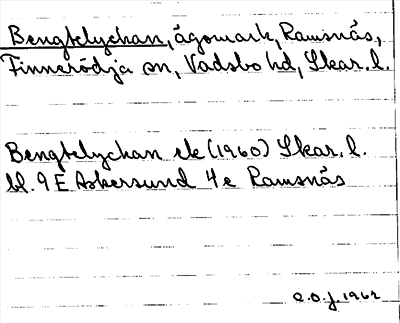 Bengtelyckan, ägomark, Ramsnäs,
Finnerödja sn, Vadsbo hd, Skar. l.
Bengtelyckan ek (1960) Skar. l.
bl. 9 E Askersund 4 e Ramsnäs
C.O.J. 1962